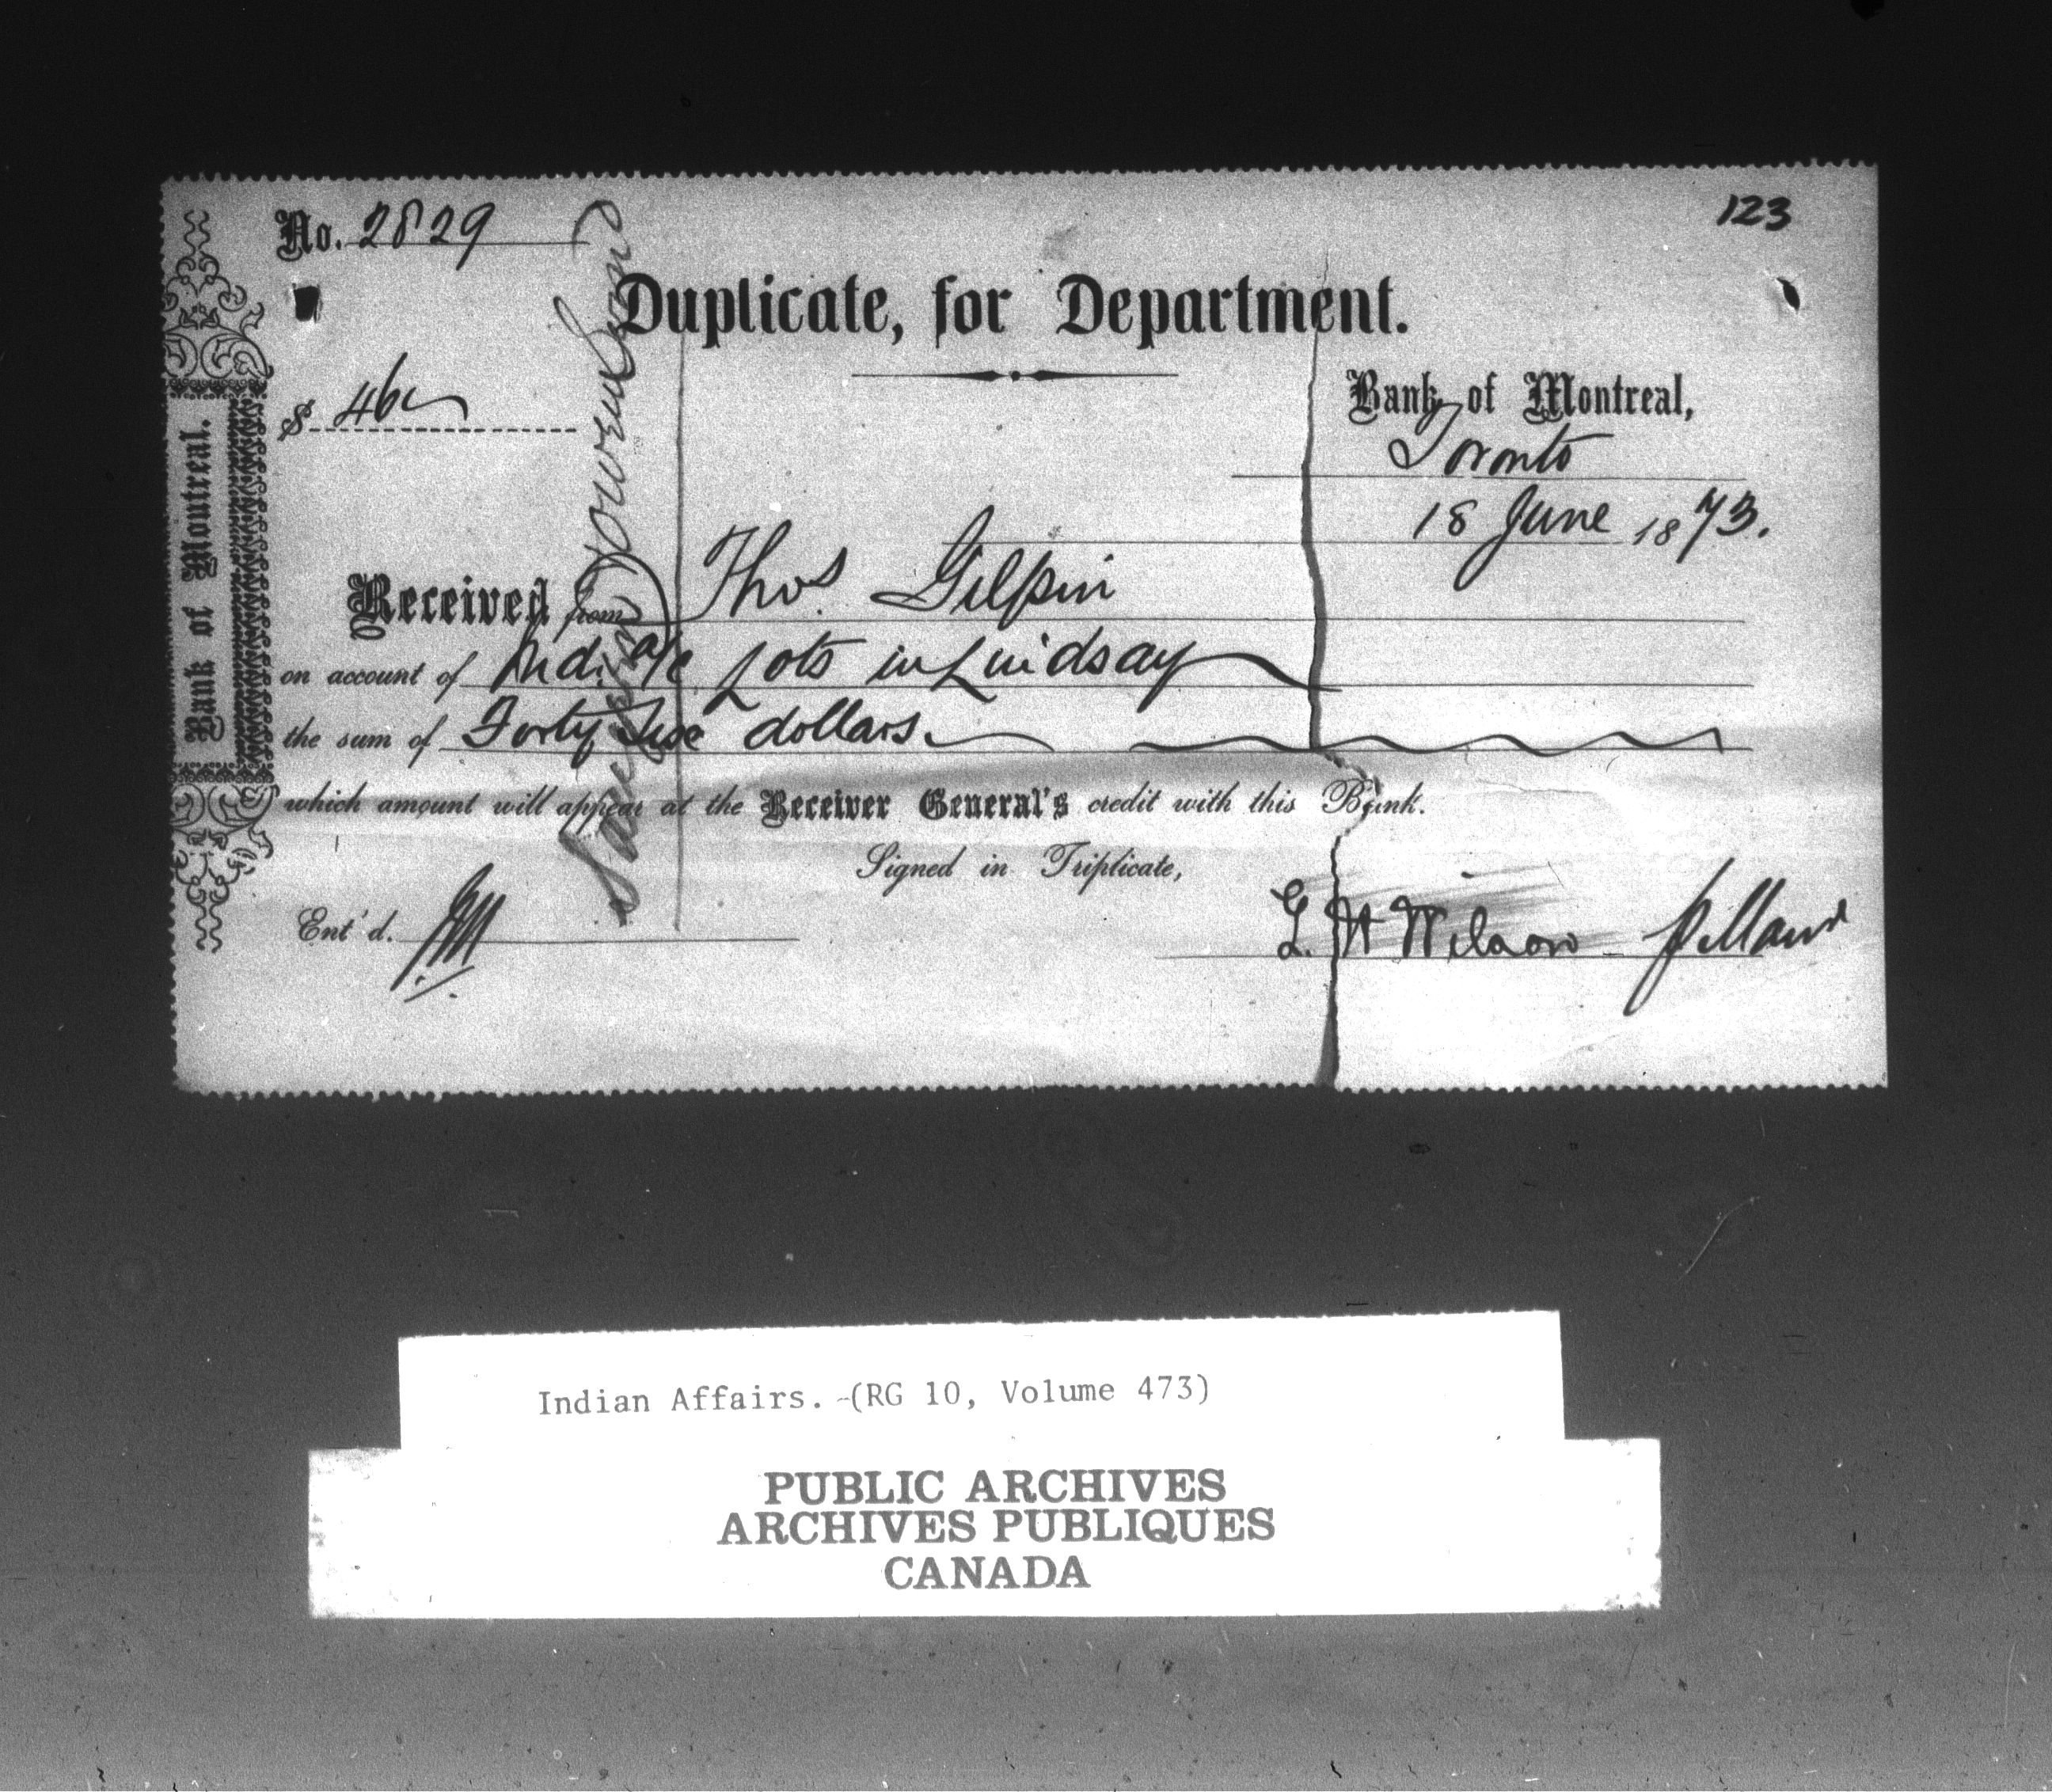 No. 2829
123
Duplicate, for Department.
$ 46
Bank of Montreal,
Toronto
18 June 1873.
Received from Thos Gilpin
on account of Ind. a/c Lots in Lindsay
the sum of Forty dollars.
which amount will appear at the Receiver General's credit with this Bank.
Signed in Triplicate,
Ent'd.
G. H Wilson
Bank of Montreal.
Indian Affairs. (RG 10, Volume 473)
PUBLIC ARCHIVES
ARCHIVES PUBLIQUES
CANADA